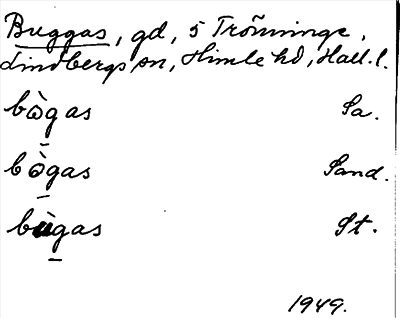 Buggas, gd, 5 Tröinninge,
Lindbergs sn, Himle hd, Hall. l.
bὼgas Sa.
bògas Sand.
bùgas St.
1949.